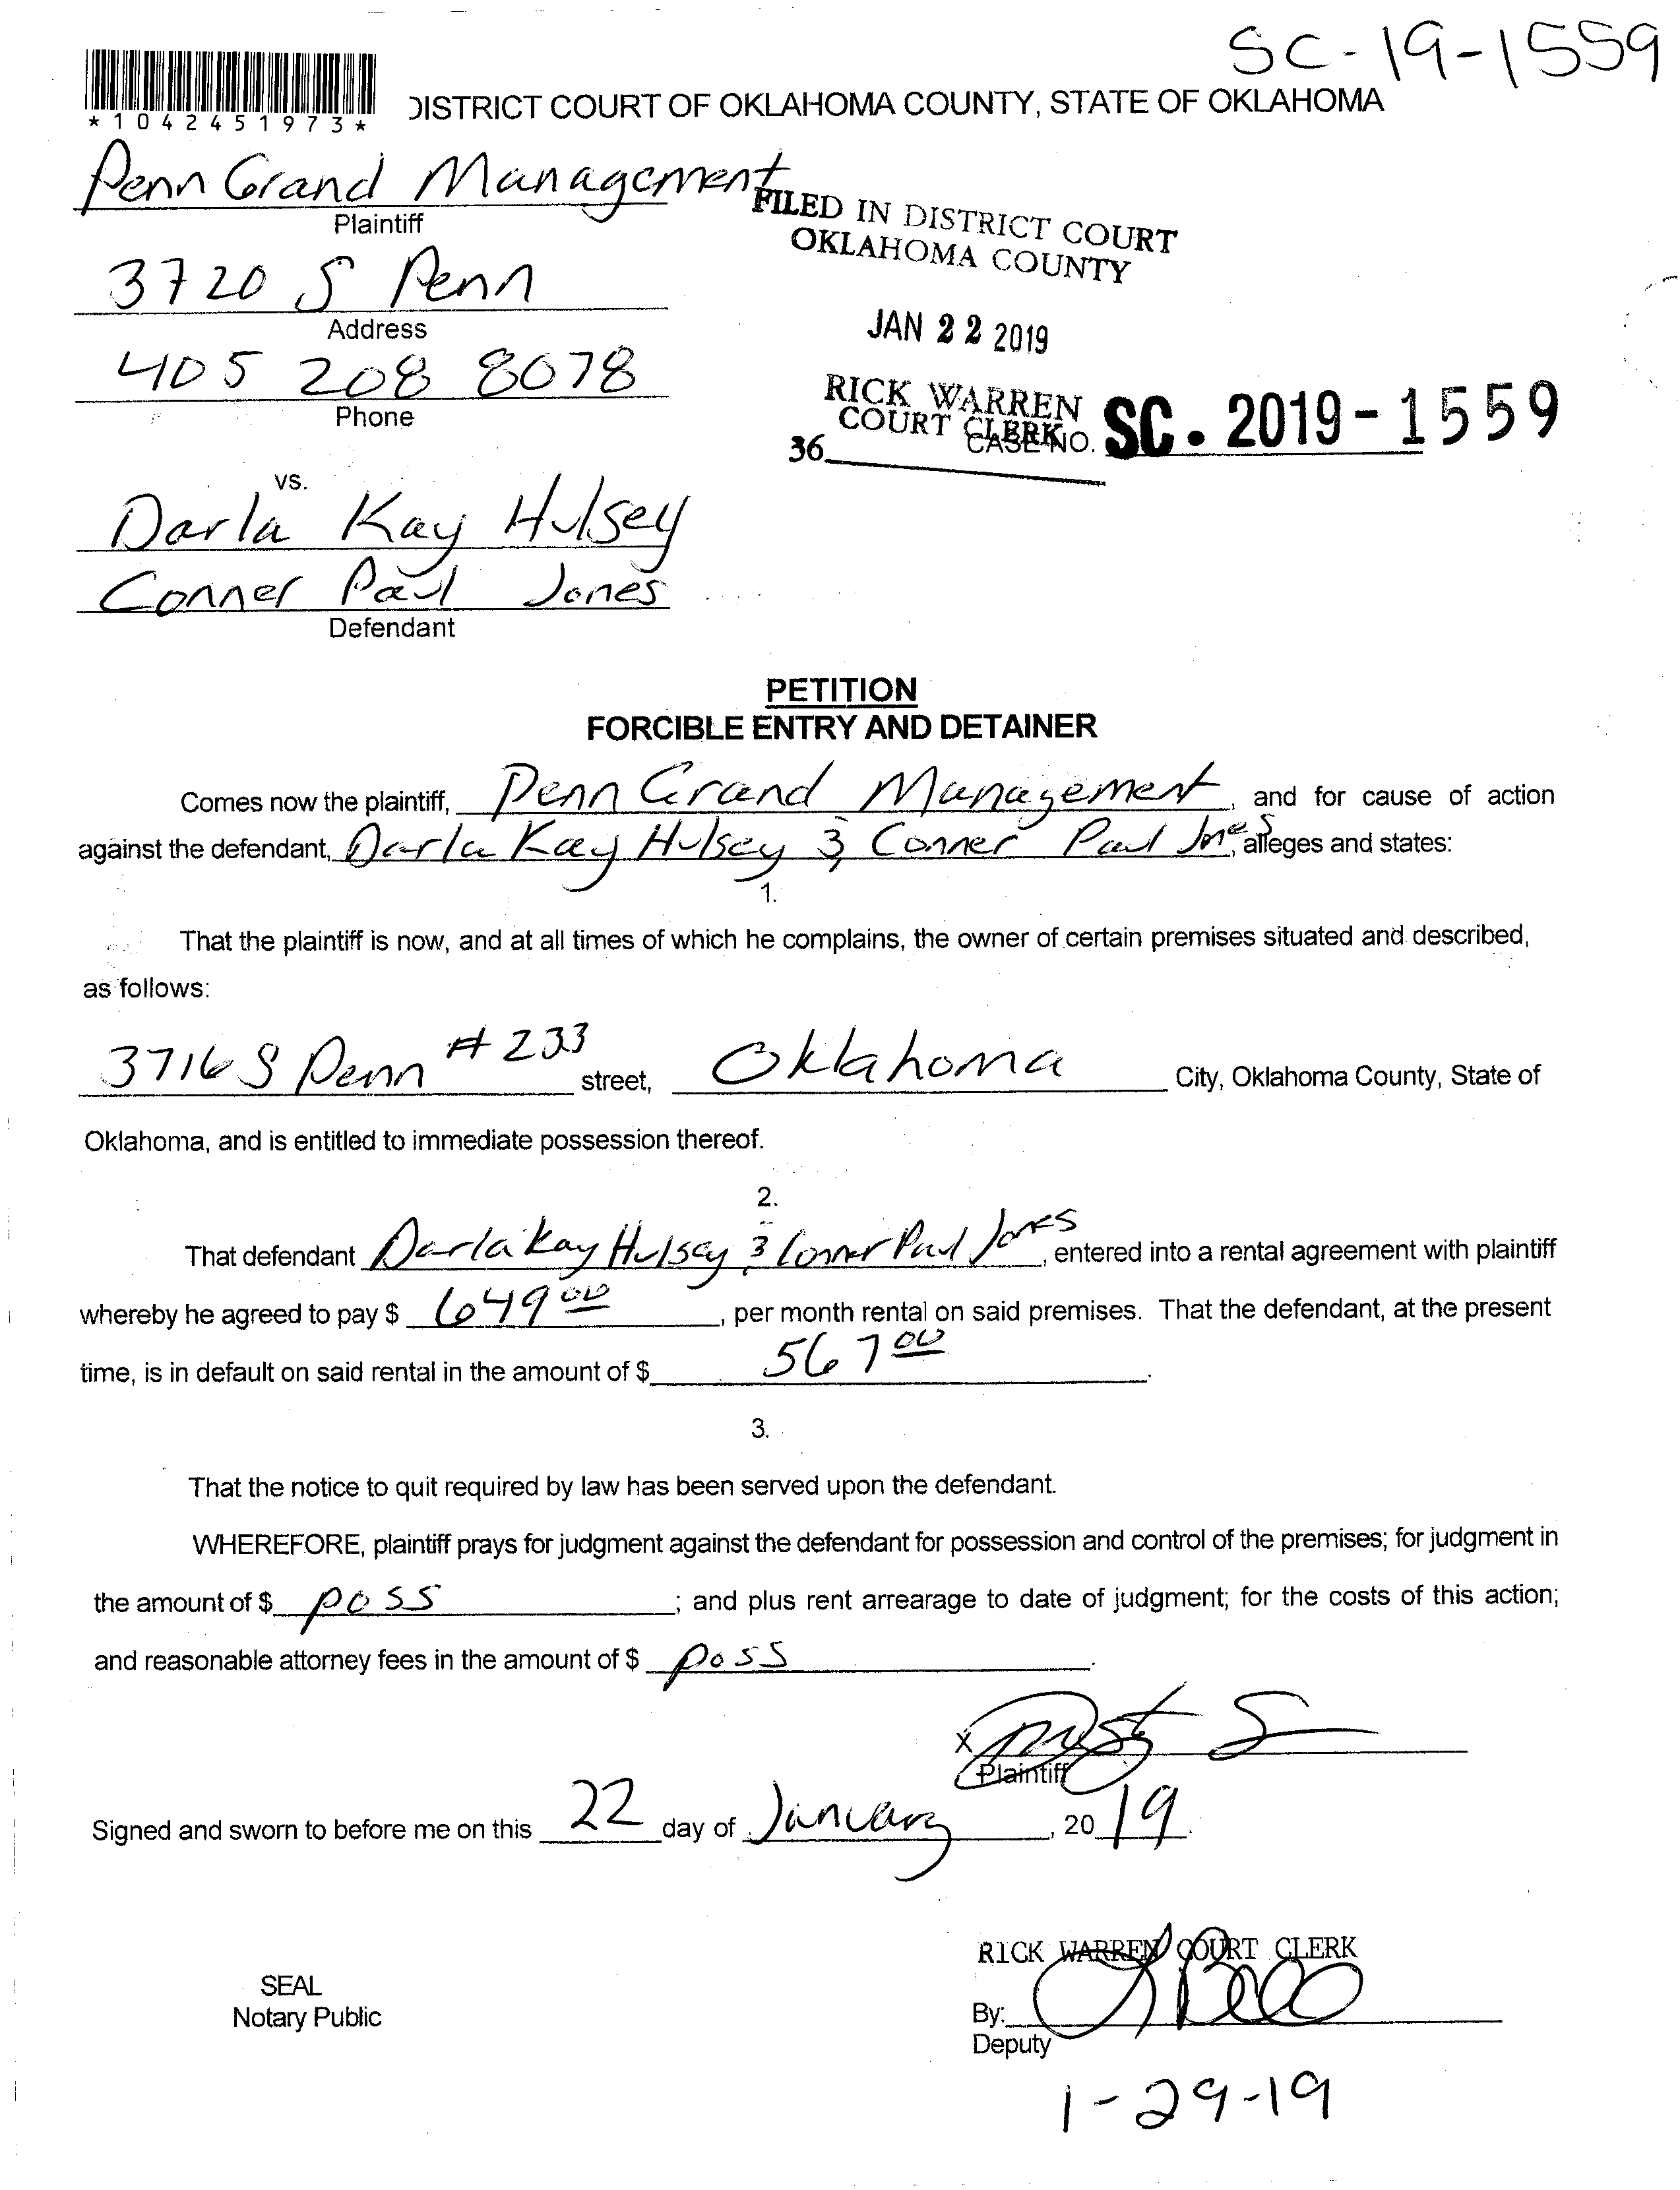 SC-19-1559
*1042451973*
DISTRICT COURT OF OKLAHOMA COUNTY, STATE OF OKLAHOMA
Penn Grand Management
Plaintiff
FILED IN DISTRICT COURT
OKLAHOMA COUNTY
3720 S Penn
Address
JAN 22 2019
405 208 8078
Phone
RICK WARREN
COURT CLERK
36
CASE NO. SC. 2019-1559
vs.
Darla Kay Hulsey
Conner Paul Jones
Defendant
PETITION
FORCIBLE ENTRY AND DETAINER
Comes now the plaintiff, Penn Grand Management, and for cause of action
against the defendant, Darla Kay Hulsey & Conner Paul Jones, alleges and states:
1.
That the plaintiff is now, and at all times of which he complains, the owner of certain premises situated and described,
as follows:
3716 S Penn #233 street, Oklahoma City, Oklahoma County, State of
Oklahoma, and is entitled to immediate possession thereof.
2.
That defendant Darla Kay Hulsey & Conner Paul Jones, entered into a rental agreement with plaintiff
whereby he agreed to pay $ 649 00, per month rental on said premises. That the defendant, at the present
time, is in default on said rental in the amount of $ 567 00.
3.
That the notice to quit required by law has been served upon the defendant.
WHEREFORE, plaintiff prays for judgment against the defendant for possession and control of the premises; for judgment in
the amount of $ poss; and plus rent arrearage to date of judgment; for the costs of this action;
and reasonable attorney fees in the amount of $ poss.
X
Plaintiff
Signed and sworn to before me on this 22 day of January, 2019.
RICK WARREN COURT CLERK
SEAL
Notary Public
By:
Deputy
1-29-19